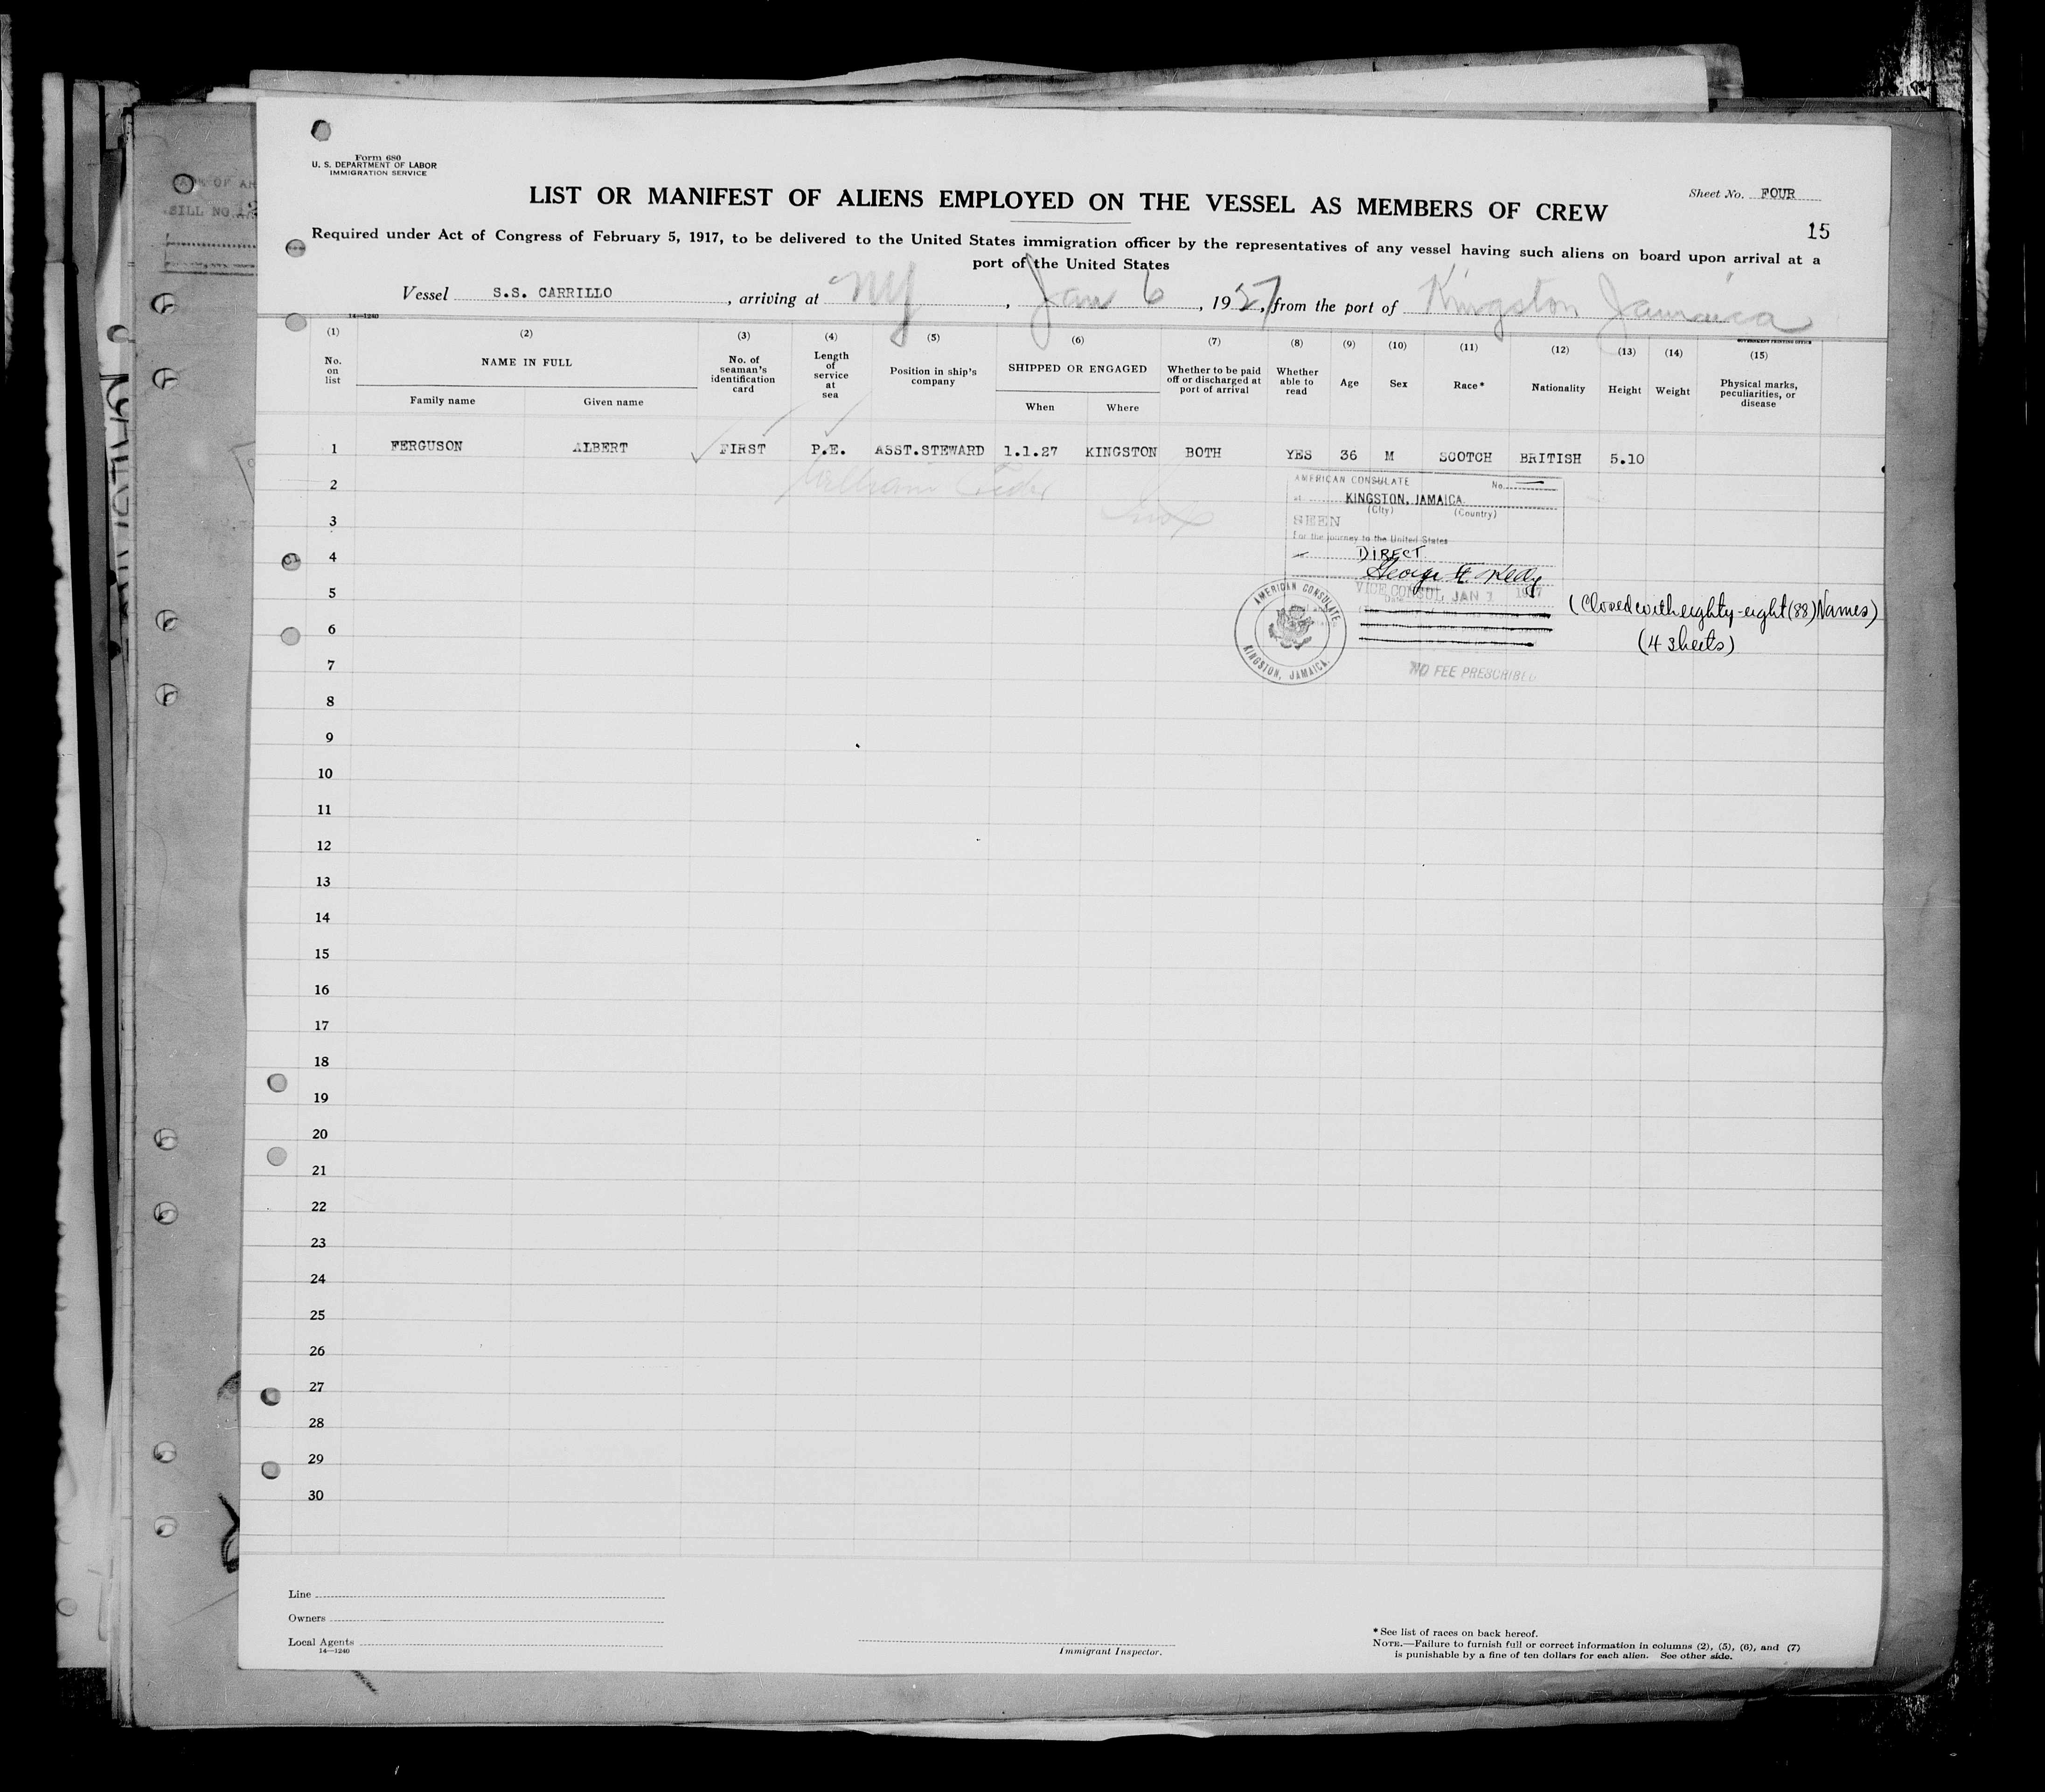 Form 680
U. S. DEPARTMENT OF LABOR
IMMIGRATION SERVICE
Sheet No. FOUR
LIST OR MANIFEST OF ALIENS EMPLOYED ON THE VESSEL AS MEMBERS OF CREW
15
Required under Act of Congress of February 5, 1917, to be delivered to the United States immigration officer by the representatives of any vessel having such aliens on board upon arrival at a
port of the United States
Vessel S.S. CARRILLO, arriving at NY, Jan 6, 1927, from the port of Kingston Jamaica
14—1240
GOVERNMENT PRINTING OFFICE
(1) (2) (3) (4) (5) (6) (7) (8) (9) (10) (11) (12) (13) (14) (15)
No. on list
NAME IN FULL
Family name
Given name
No. of seaman's identification card
Length of service at sea
Position in ship's company
SHIPPED OR ENGAGED
When
Where
Whether to be paid off or discharged at port of arrival
Whether able to read
Age
Sex
Race*
Nationality
Height
Weight
Physical marks, peculiarities, or disease
1 FERGUSON ALBERT FIRST P.E. ASST.STEWARD 1.1.27 KINGSTON BOTH YES 36 M SCOTCH BRITISH 5.10
2
3
4
5
6
7
8
9
10
11
12
13
14
15
16
17
18
19
20
21
22
23
24
25
26
27
28
29
30
AMERICAN CONSULATE No.
at KINGSTON, JAMAICA
(City) (Country)
SEEN
for the journey to the United States
DIRECT
VICE CONSUL JAN 1 1927
AMERICAN CONSULATE
KINGSTON, JAMAICA.
NO FEE PRESCRIBED
(Closed with eighty-eight (88) Names)
(4 sheets)
Line
Owners
Local Agents
14—1240
Immigrant Inspector.
*See list of races on back hereof.
NOTE.—Failure to furnish full or correct information in columns (2), (5), (6), and (7)
is punishable by a fine of ten dollars for each alien. See other side.